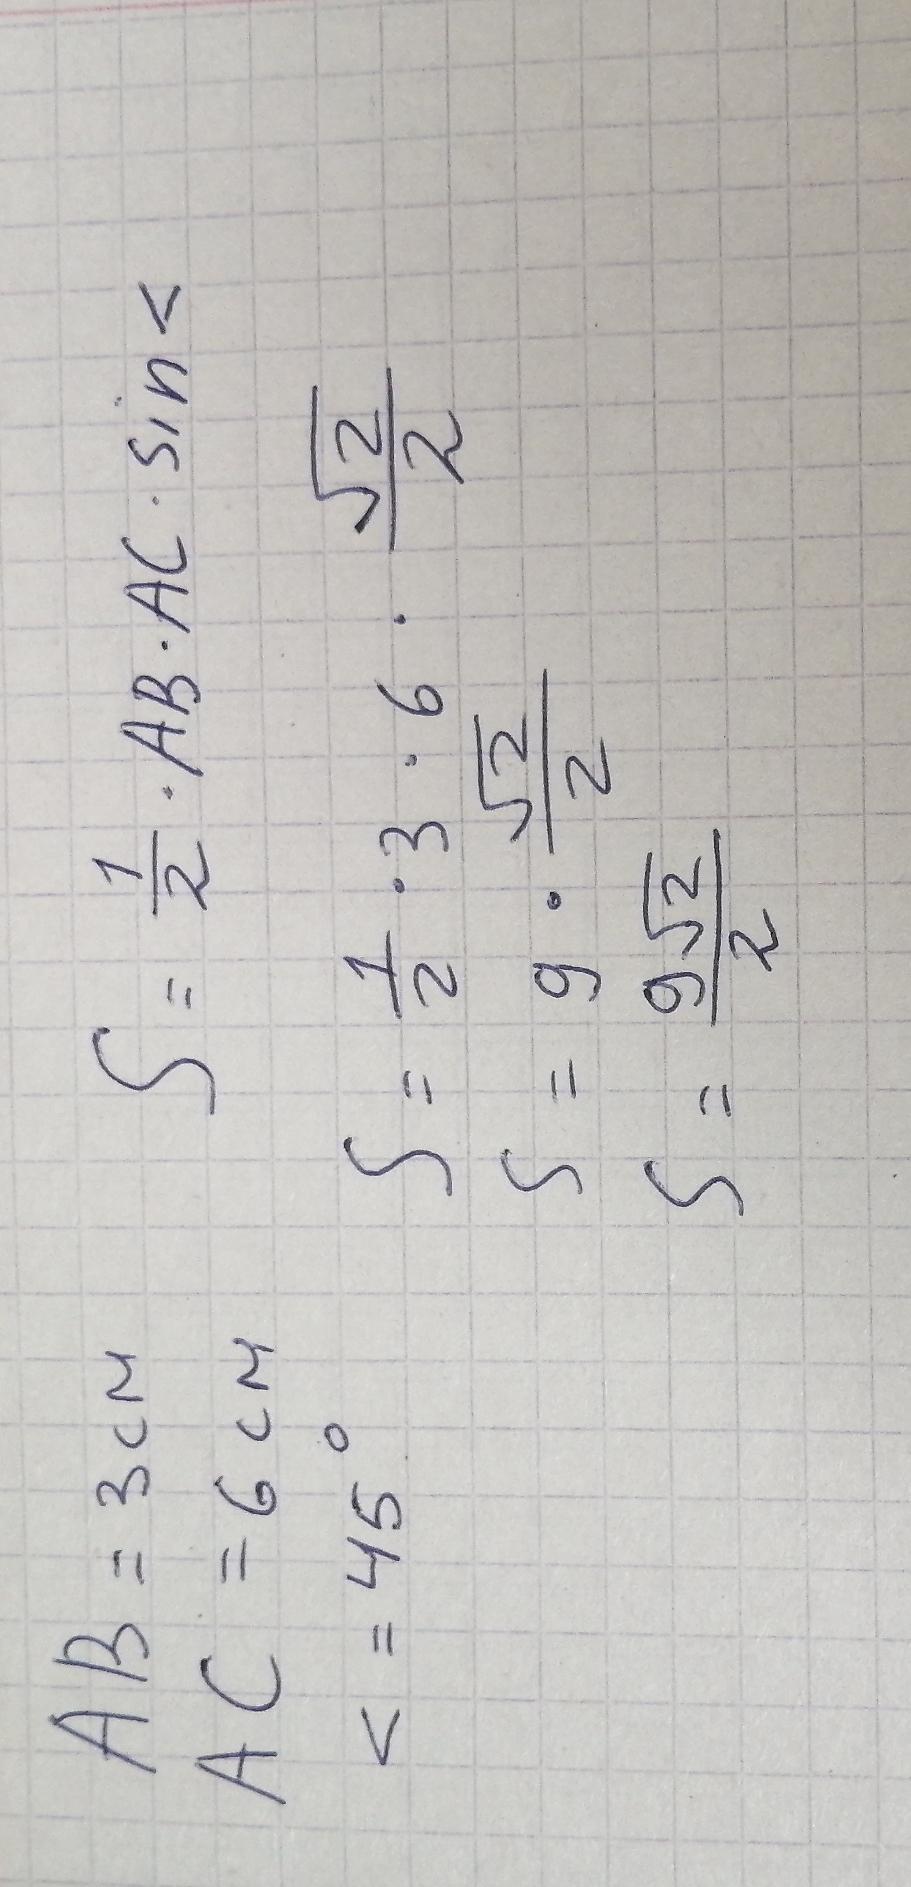 AB = 3 см
AC = 6 см
< = 45°
S = 1/2 · AB · AC · sin <
S = 1/2 · 3 · 6 · √2/2
S = 9 · √2/2
S = 9√2/2